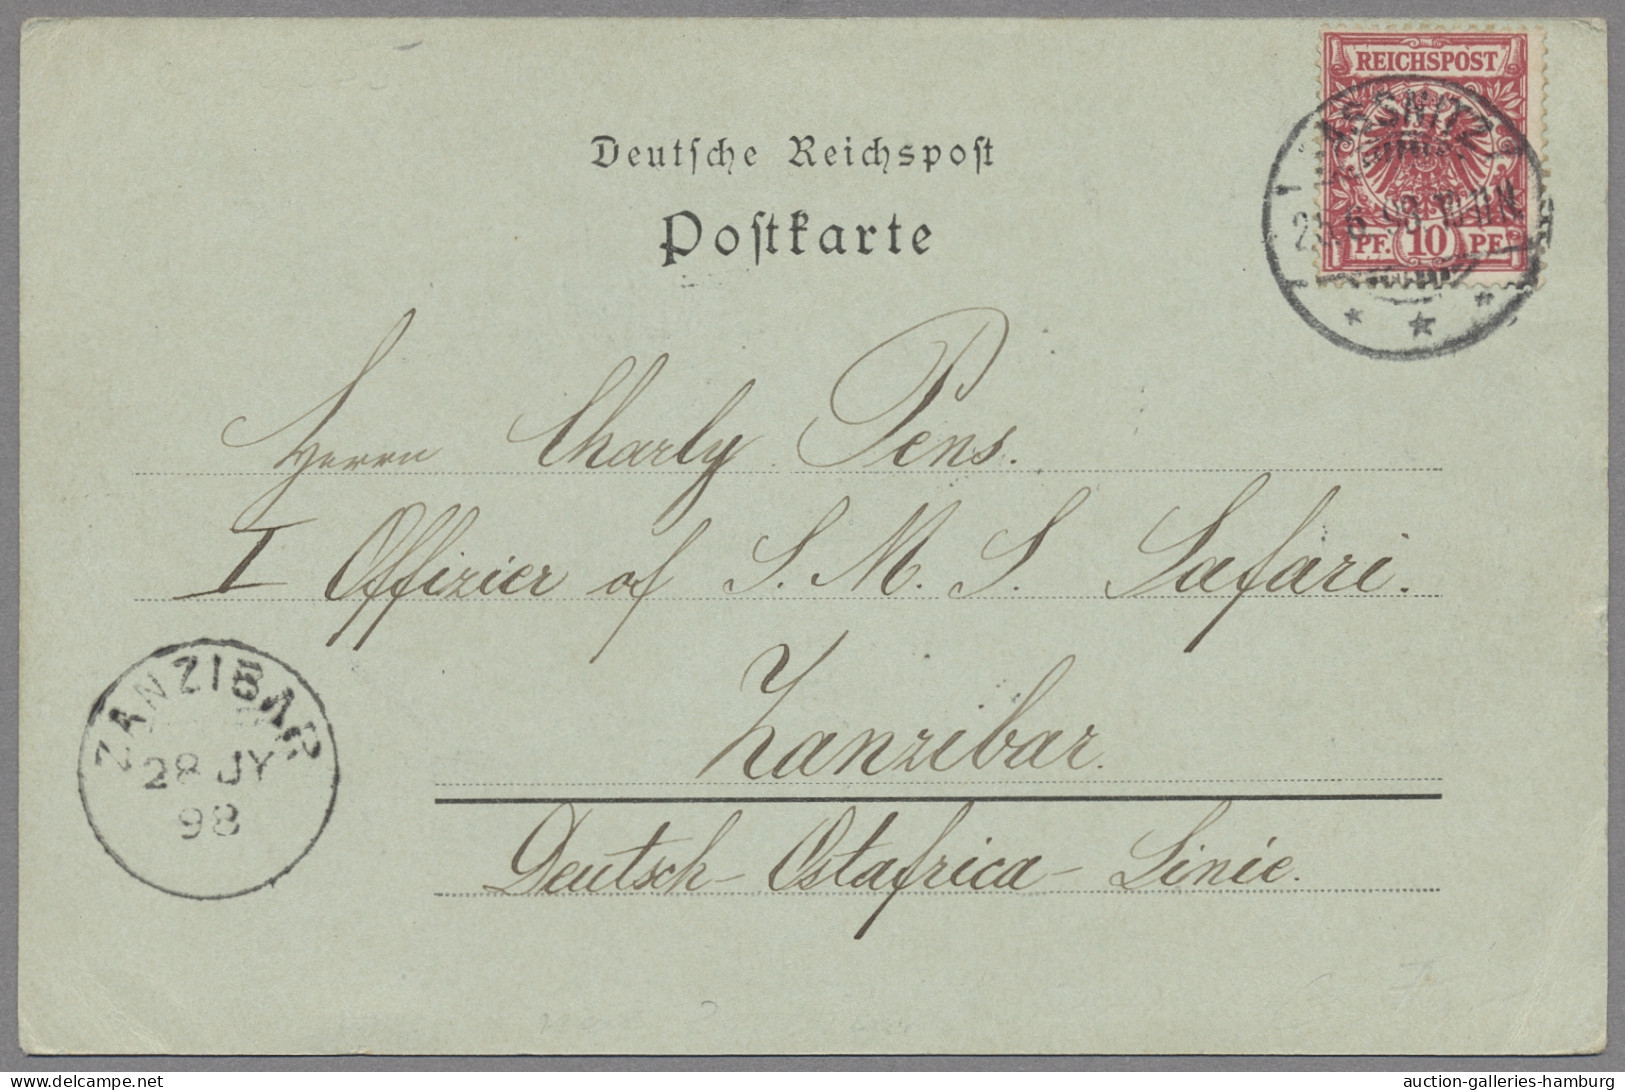 REICHSPOST
SASSNITZ
6. 98. 10-11 N
PF. 10 PF.
Deutsche Reichspost
Postkarte
Herrn Charly Pens.
I Offizier of S. M. S. Safari.
Zanzibar.
Deutsch-Ostafrica-Linie.
ZANZIBAR
28 JY
98
auction-galleries-hamburg